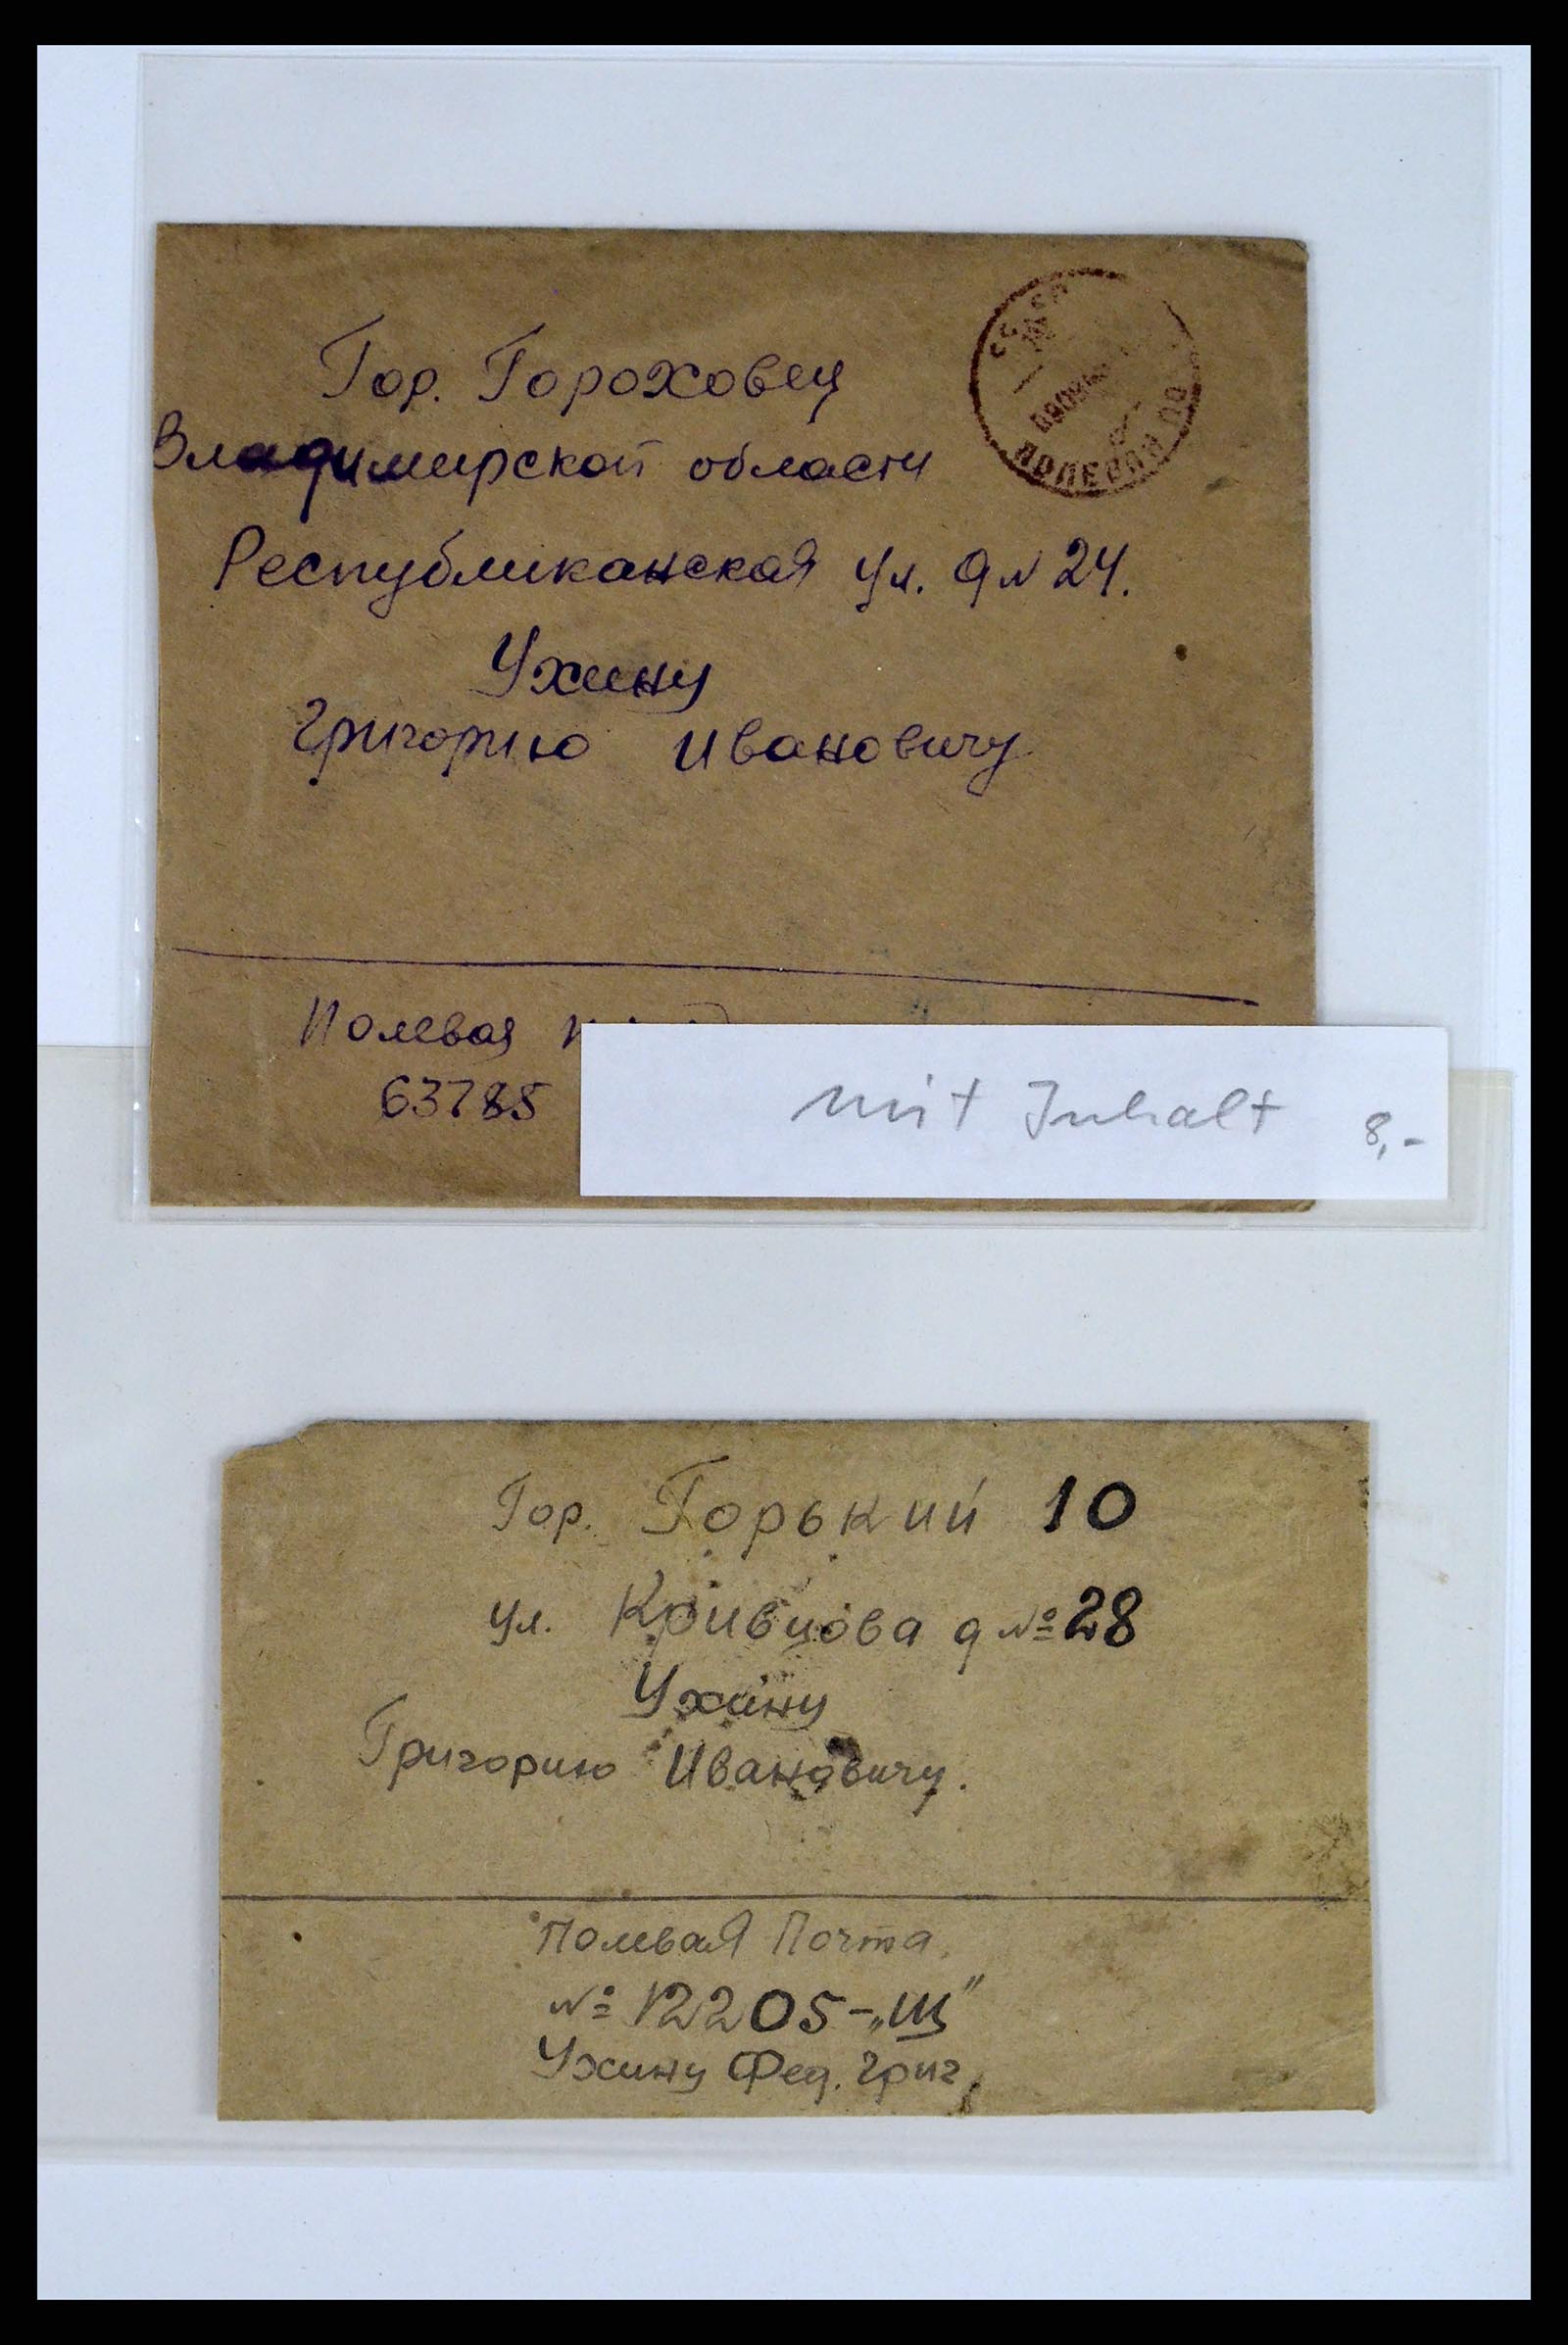 Гор. Гороховец
Владимирской области
Республиканская ул. д№ 24.
Ухину
Григорию Ивановичу
Полевая
63785
mit Inhalt 8,-
Гор. Горький 10
ул. Кривцова д №28
Ухину
Григорию Ивановичу.
Полевая Почта.
№ 12205-„Щ"
Ухину Фед. Григ.